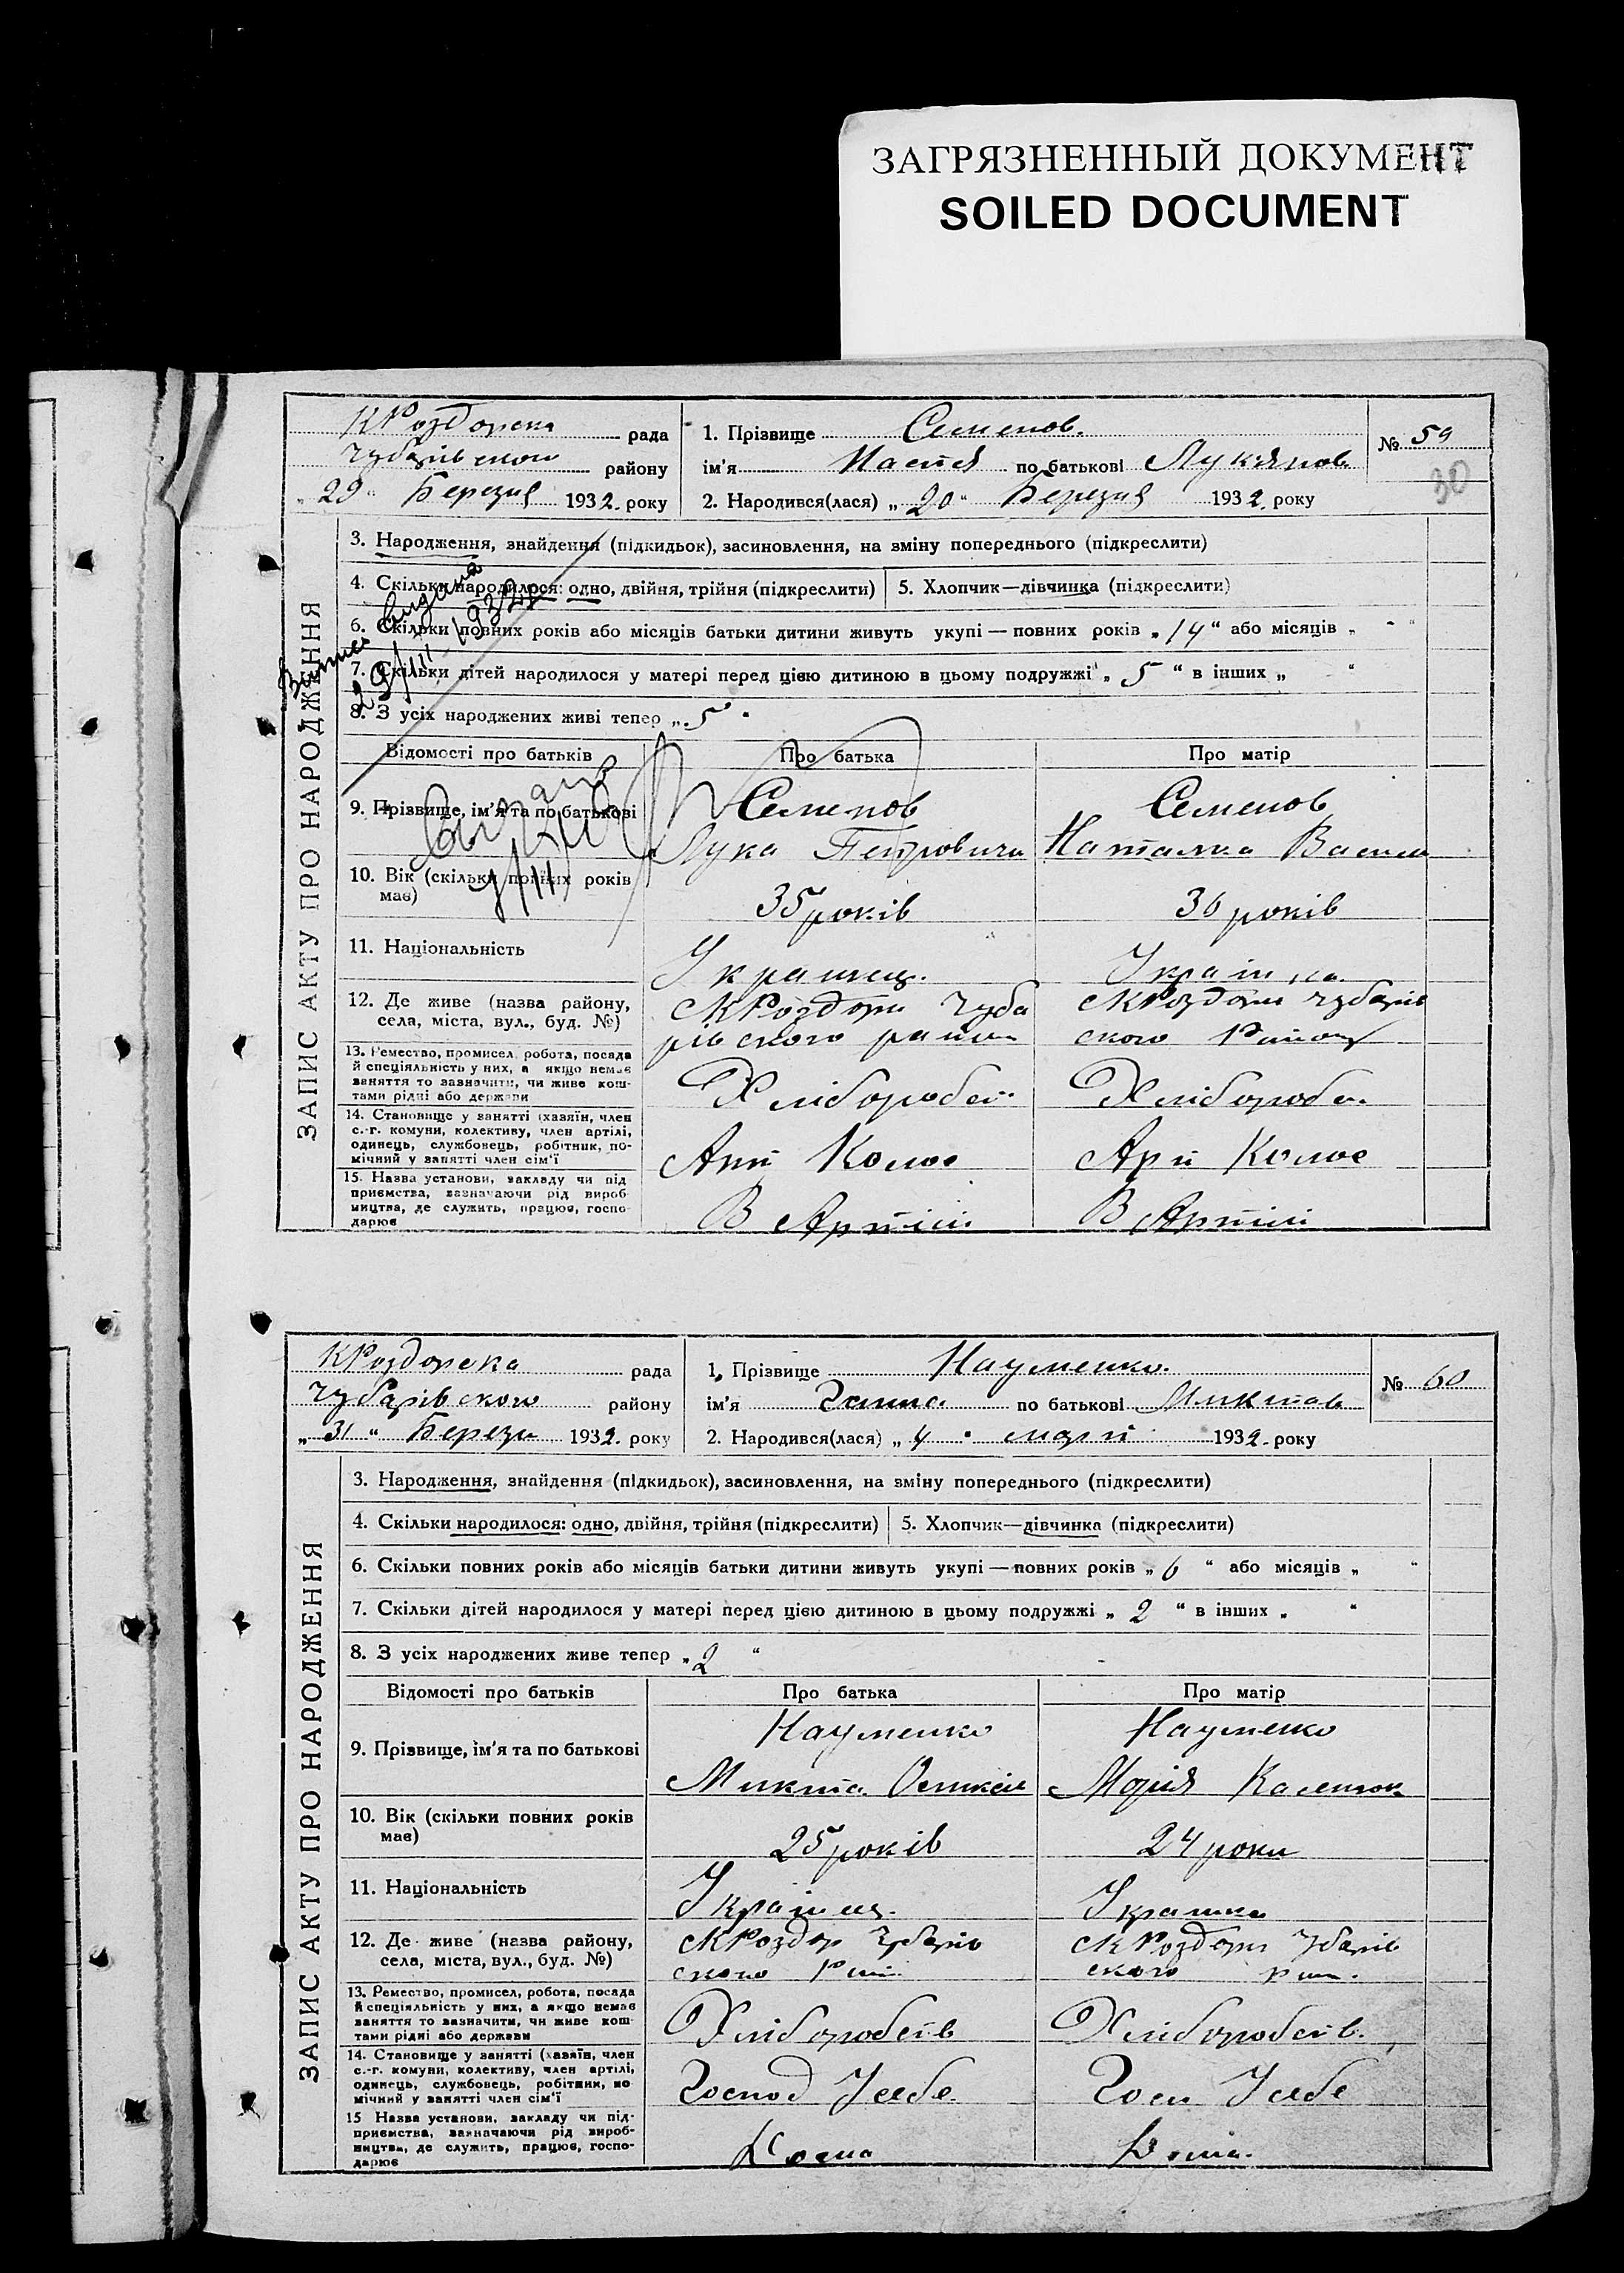 ЗАГРЯЗНЕННЫЙ ДОКУМЕНТ
SOILED DOCUMENT
ЗАПИС АКТУ ПРО НАРОДЖЕННЯ
КРоздорска рада
Чубарівского району
„29“ Березня 1932. року
1. Прізвище Семенов.
ім'я Настя по батькові Лукянов
2. Народився(лася) „20“ Березня 1932. року
№ 59
30
3. Народження, знайдення (підкидьок), засиновлення, на зміну попереднього (підкреслити)
4. Скільки народилося: одно, двійня, трійня (підкреслити)
5. Хлопчик—дівчинка (підкреслити)
6. Скільки повних років або місяців батьки дитини живуть укупі — повних років „14“ або місяців „ - “
7. Скільки дітей народилося у матері перед цією дитиною в цьому подружжі „5“ в інших „ “
8. З усіх народжених живі тепер „5“
29/III-1932
Відомості про батьків
Про батька
Про матір
9. Прізвище, ім'я та по батькові
Семенов
Лука Петровичи
Семенов
Наталка Васил
10. Вік (скільки повних років
має)
35 років
36 років
11. Національність
Украинец.
Україн ка.
12. Де живе (назва району,
села, міста, вул., буд. №)
сКРоздори Чуба
рівского район
сКРоздори Чубарів
ского Району
13. Ремество, промисел, робота, посада
й спеціяльність у них, а якщо немає
заняття то зазначити, чи живе кош-
тами рідні або держави
Хлібороб
Хлібороб
14. Становище у занятті (хазяїн, член
с.-г. комуни, колективу, член артілі,
одинець, службовець, робітник, по-
мічний у занятті член сім'ї
Арт Колос
Арт Колос
15. Назва установи, закладу чи під
приємства, зазначаючи рід вироб
ництва, де служить, працює, госпо-
дарює
В Артіли
В Артіли
ЗАПИС АКТУ ПРО НАРОДЖЕННЯ
КРоздорска рада
Чубарівского району
„31“ Берези 1932. року
1. Прізвище Науменко.
ім'я Ганна по батькові Микитов
2. Народився(лася) „4“ марта 1932. року
№ 60
3. Народження, знайдення (підкидьок), засиновлення, на зміну попереднього (підкреслити)
4. Скільки народилося: одно, двійня, трійня (підкреслити)
5. Хлопчик—дівчинка (підкреслити)
6. Скільки повних років або місяців батьки дитини живуть укупі — повних років „6“ або місяців „ “
7. Скільки дітей народилося у матері перед цією дитиною в цьому подружжі „2“ в інших „ “
8. З усіх народжених живе тепер „2“
Відомості про батьків
Про батька
Про матір
9. Прізвище, ім'я та по батькові
Науменко
Микита
Науменко
Марія
10. Вік (скільки повних років
має)
25 років
24 роки
11. Національність
Українец.
Украинка
12. Де живе (назва району,
села, міста, вул., буд. №)
сКРоздор Чубарів
ского Рай.
сКРоздори Чубарів
ского рай.
13. Ремество, промисел, робота, посада
й спеціяльність у них, а якщо немає
заняття то зазначити, чи живе кош-
тами рідні або держави
Хліборобств
Хліборобств.
14. Становище у занятті (хазяїн, член
с.-г. комуни, колективу, член артілі,
одинець, службовець, робітник, по
мічний у занятті член сім'ї
Господ Усебе
Госп Усебе
15 Назва установи, закладу чи під-
приємства, зазначаючи рід вироб-
ництва, де служить, працює, госпо-
дарює
Дома
Дома.